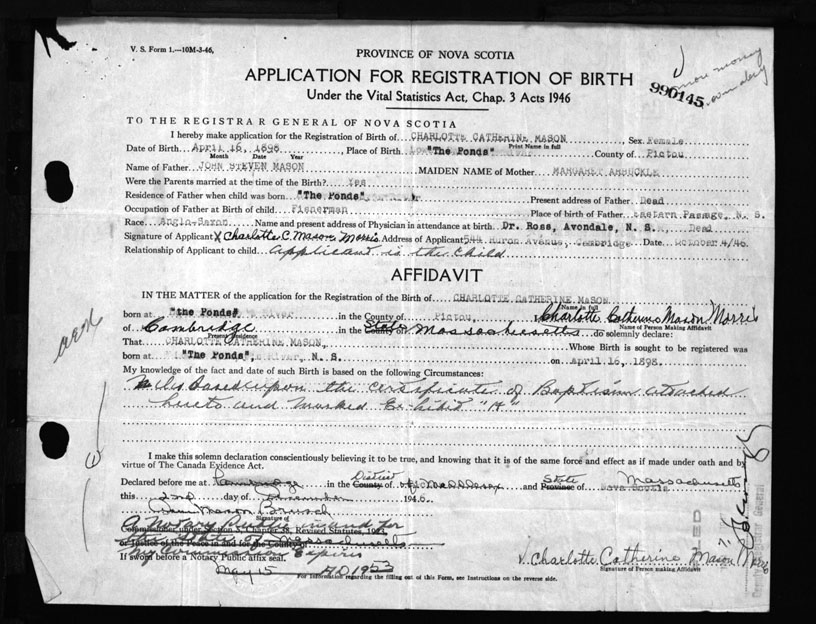 V. S. Form 1.—10M-3-46,
PROVINCE OF NOVA SCOTIA
APPLICATION FOR REGISTRATION OF BIRTH
990145
Under the Vital Statistics Act, Chap. 3 Acts 1946
TO THE REGISTRAR GENERAL OF NOVA SCOTIA
I hereby make application for the Registration of Birth of CHARLOTTE CATHERINE MASON, Sex Female
Print Name in full
Date of Birth April 16, 1898, Place of Birth "The Ponds" County of Pictou
Month Date Year
Name of Father JOHN STEVEN MASON MAIDEN NAME of Mother MARGARET ARBUCKLE
Were the Parents married at the time of the Birth? Yes
Residence of Father when child was born "The Ponds" Present address of Father Dead
Occupation of Father at Birth of child Fisherman Place of birth of Father Eastern Passage, N. S.
Race Anglo-Saxon Name and present address of Physician in attendance at birth Dr. Ross, Avondale, N. S. Dead
Signature of Applicant X Charlotte C. Mason Morris Address of Applicant 544 Huron Avenue, Cambridge Date October 4/46.
Relationship of Applicant to child Applicant is the child
AFFIDAVIT
IN THE MATTER of the application for the Registration of the Birth of CHARLOTTE CATHERINE MASON
Name in full
born at "the Ponds" River in the County of Pictou, Charlotte Catherine Mason Morris
Name of Person Making Affidavit
of Cambridge in the County of State Massachusetts do solemnly declare:
Present Residence
That CHARLOTTE CATHERINE MASON, Whose Birth is sought to be registered was
born at "The Ponds" River, N. S. on April 16, 1898.
My knowledge of the fact and date of such Birth is based on the following Circumstances:
is based upon the certificate of Baptism attached
hereto and marked Exhibit "A"
I make this solemn declaration conscientiously believing it to be true, and knowing that it is of the same force and effect as if made under oath and by
virtue of The Canada Evidence Act.
Declared before me at Cambridge in the County District of Middlesex and Province State of Nova Scotia Massachusetts
this 22nd day of 1946.
Signature of
A Notary Public in and for
Commissioner under Section 5, Chapter 38, Revised Statutes, 1923
the State of Massachusetts
or Justice of the Peace in and for the County of
My Commission Expires
If sworn before a Notary Public affix seal.
May 15 AD 1953
Charlotte Catherine Mason Morris
Signature of Person making Affidavit
For Information regarding the filling out of this Form, see Instructions on the reverse side.